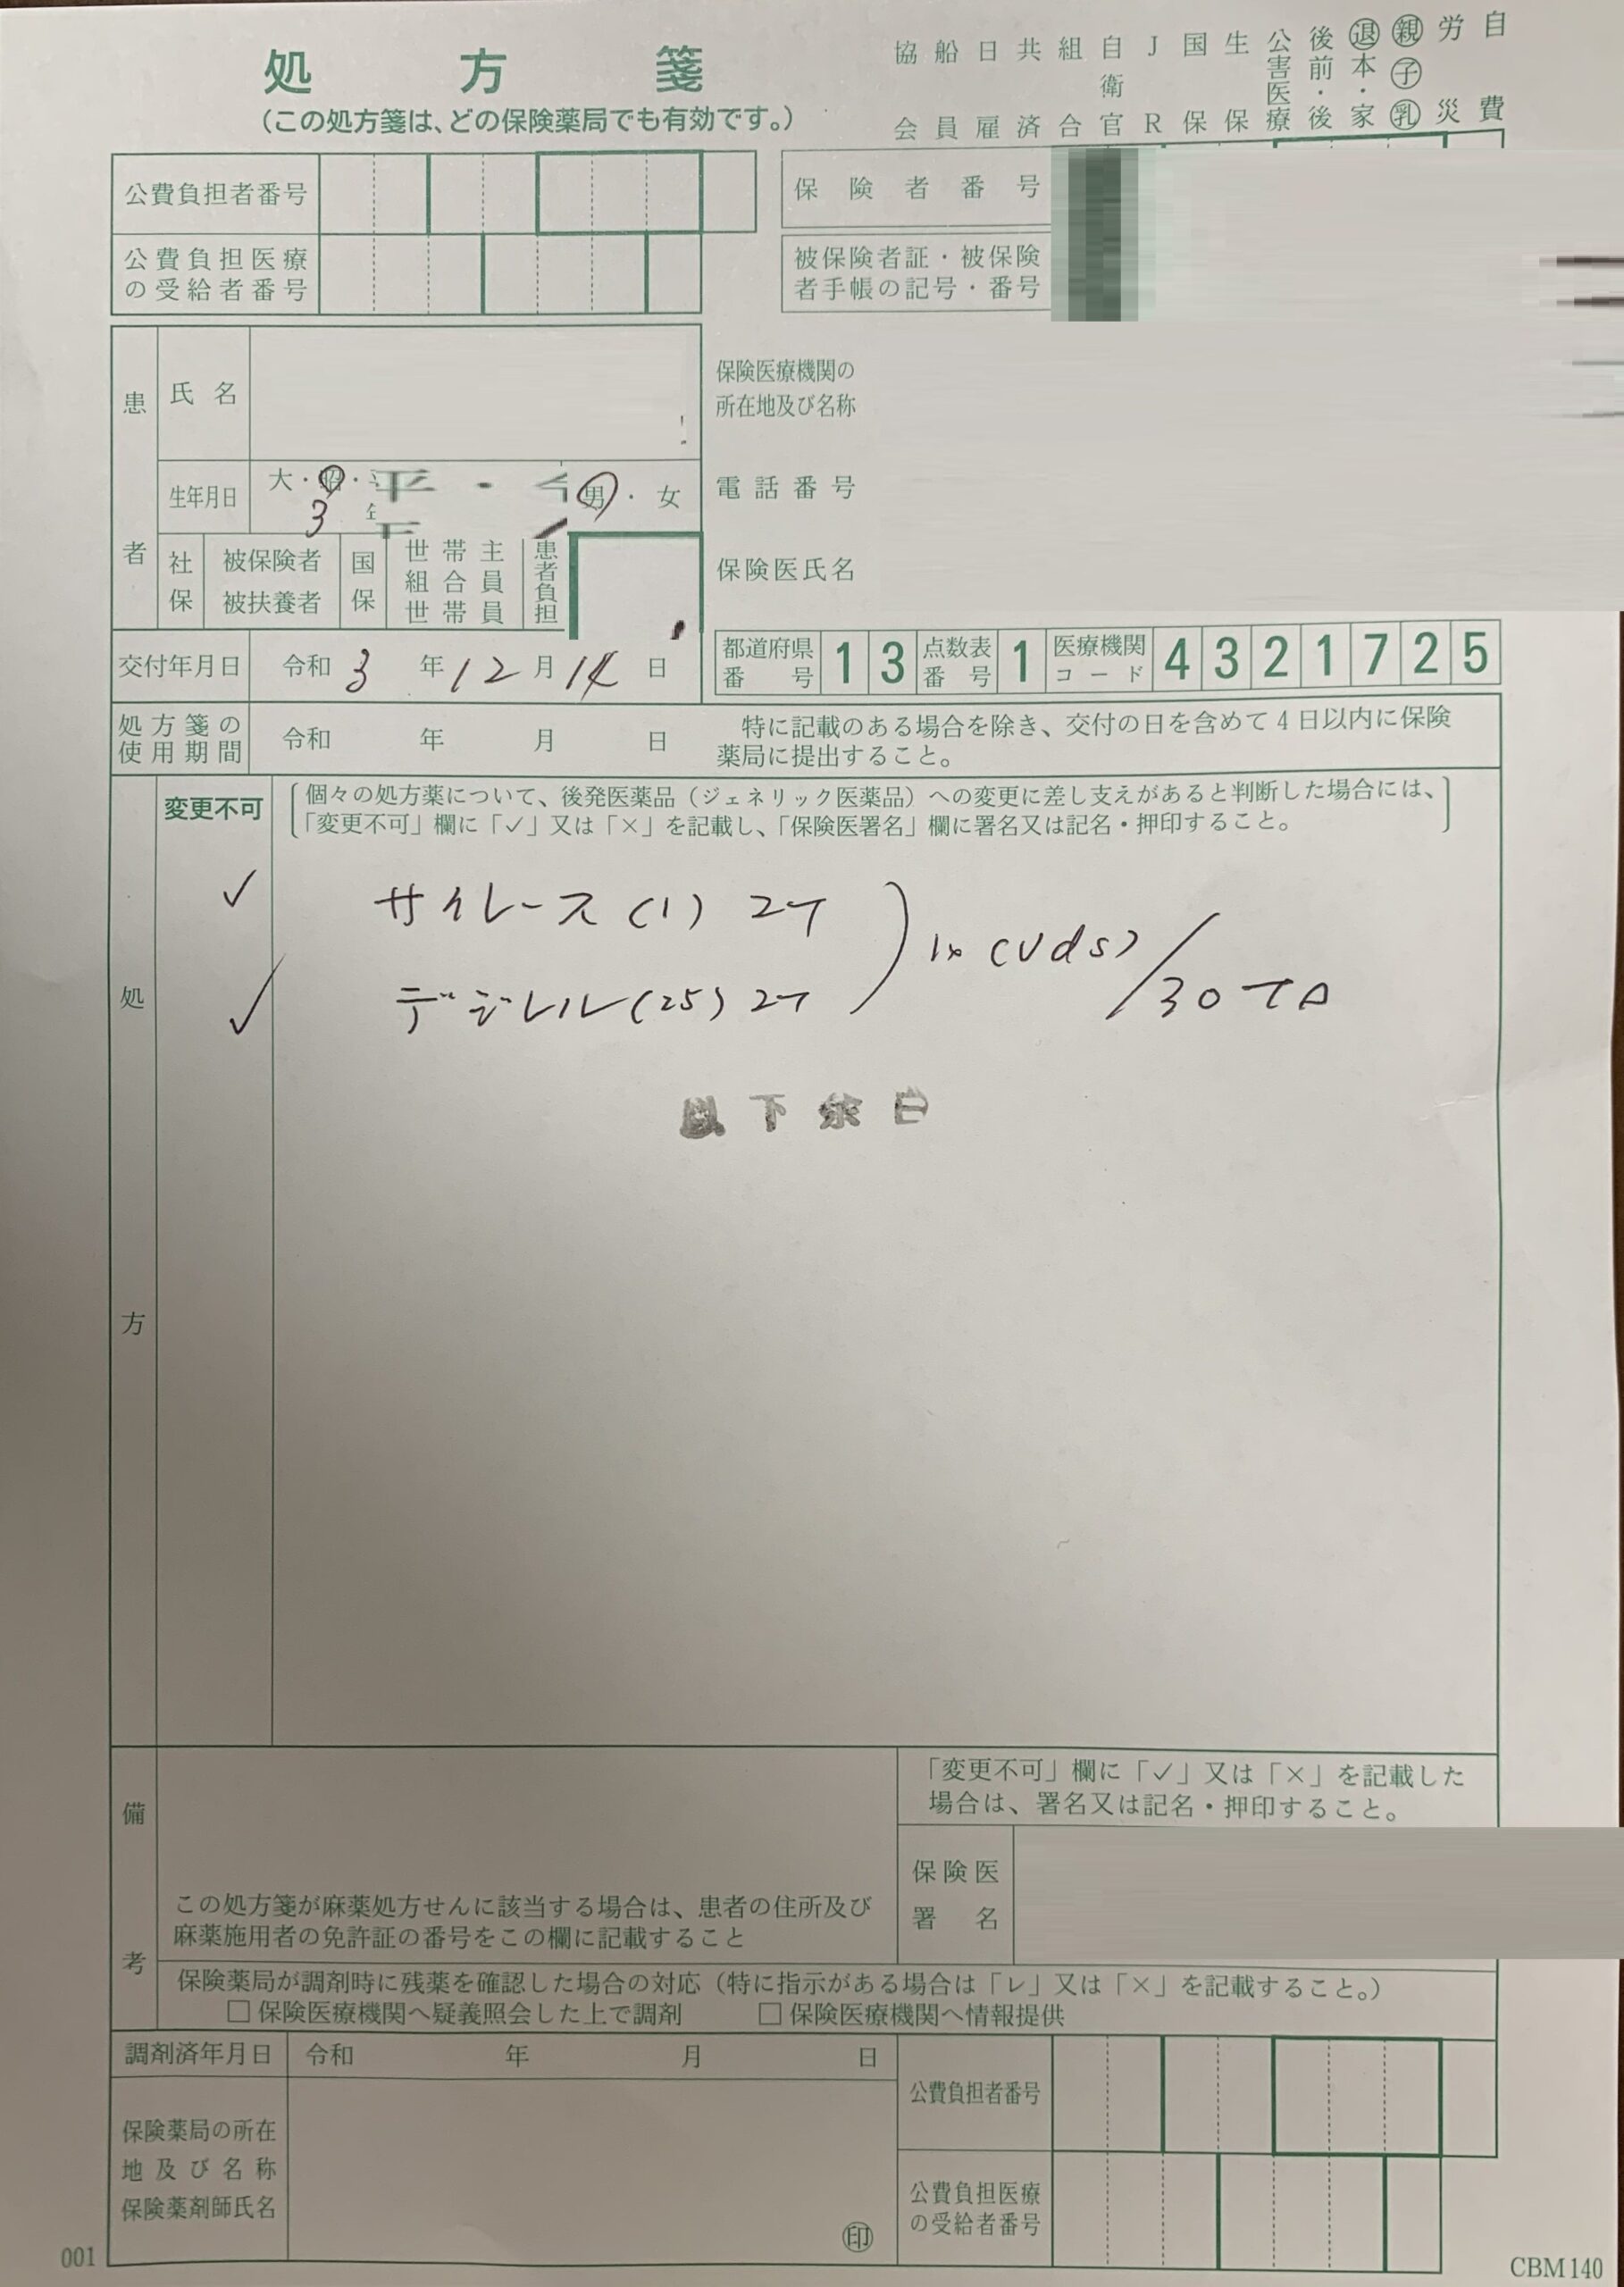 処方箋
(この処方箋は、どの保険薬局でも有効です。)
協会 船員 日雇 共済 組合 自衛官 JR 国保 生保 公害医療 後前・後 退本・家 親子乳 労災 自費
公費負担者番号
公費負担医療の受給者番号
保険者番号
被保険者証・被保険者手帳の記号・番号
患者
氏名
保険医療機関の所在地及び名称
生年月日 大・昭・ 3 平・ 男・女
電話番号
社保 被保険者 被扶養者 国保 世帯主 組合員 世帯員 患者負担
保険医氏名
交付年月日 令和 3 年 12 月 14 日
都道府県番号 13 点数表番号 1 医療機関コード 4321725
処方箋の使用期間 令和 年 月 日
特に記載のある場合を除き、交付の日を含めて4日以内に保険薬局に提出すること。
処方
変更不可
個々の処方薬について、後発医薬品(ジェネリック医薬品)への変更に差し支えがあると判断した場合には、
「変更不可」欄に「✓」又は「×」を記載し、「保険医署名」欄に署名又は記名・押印すること。
✓ サイレース(1) 2T
✓ デジレル(25) 2T
1x (vds) / 30TD
以下余白
備考
「変更不可」欄に「✓」又は「×」を記載した
場合は、署名又は記名・押印すること。
保険医署名
この処方箋が麻薬処方せんに該当する場合は、患者の住所及び
麻薬施用者の免許証の番号をこの欄に記載すること
保険薬局が調剤時に残薬を確認した場合の対応(特に指示がある場合は「レ」又は「×」を記載すること。)
□保険医療機関へ疑義照会した上で調剤 □保険医療機関へ情報提供
調剤済年月日 令和 年 月 日
公費負担者番号
保険薬局の所在地及び名称
保険薬剤師氏名
印
公費負担医療の受給者番号
001
CBM140